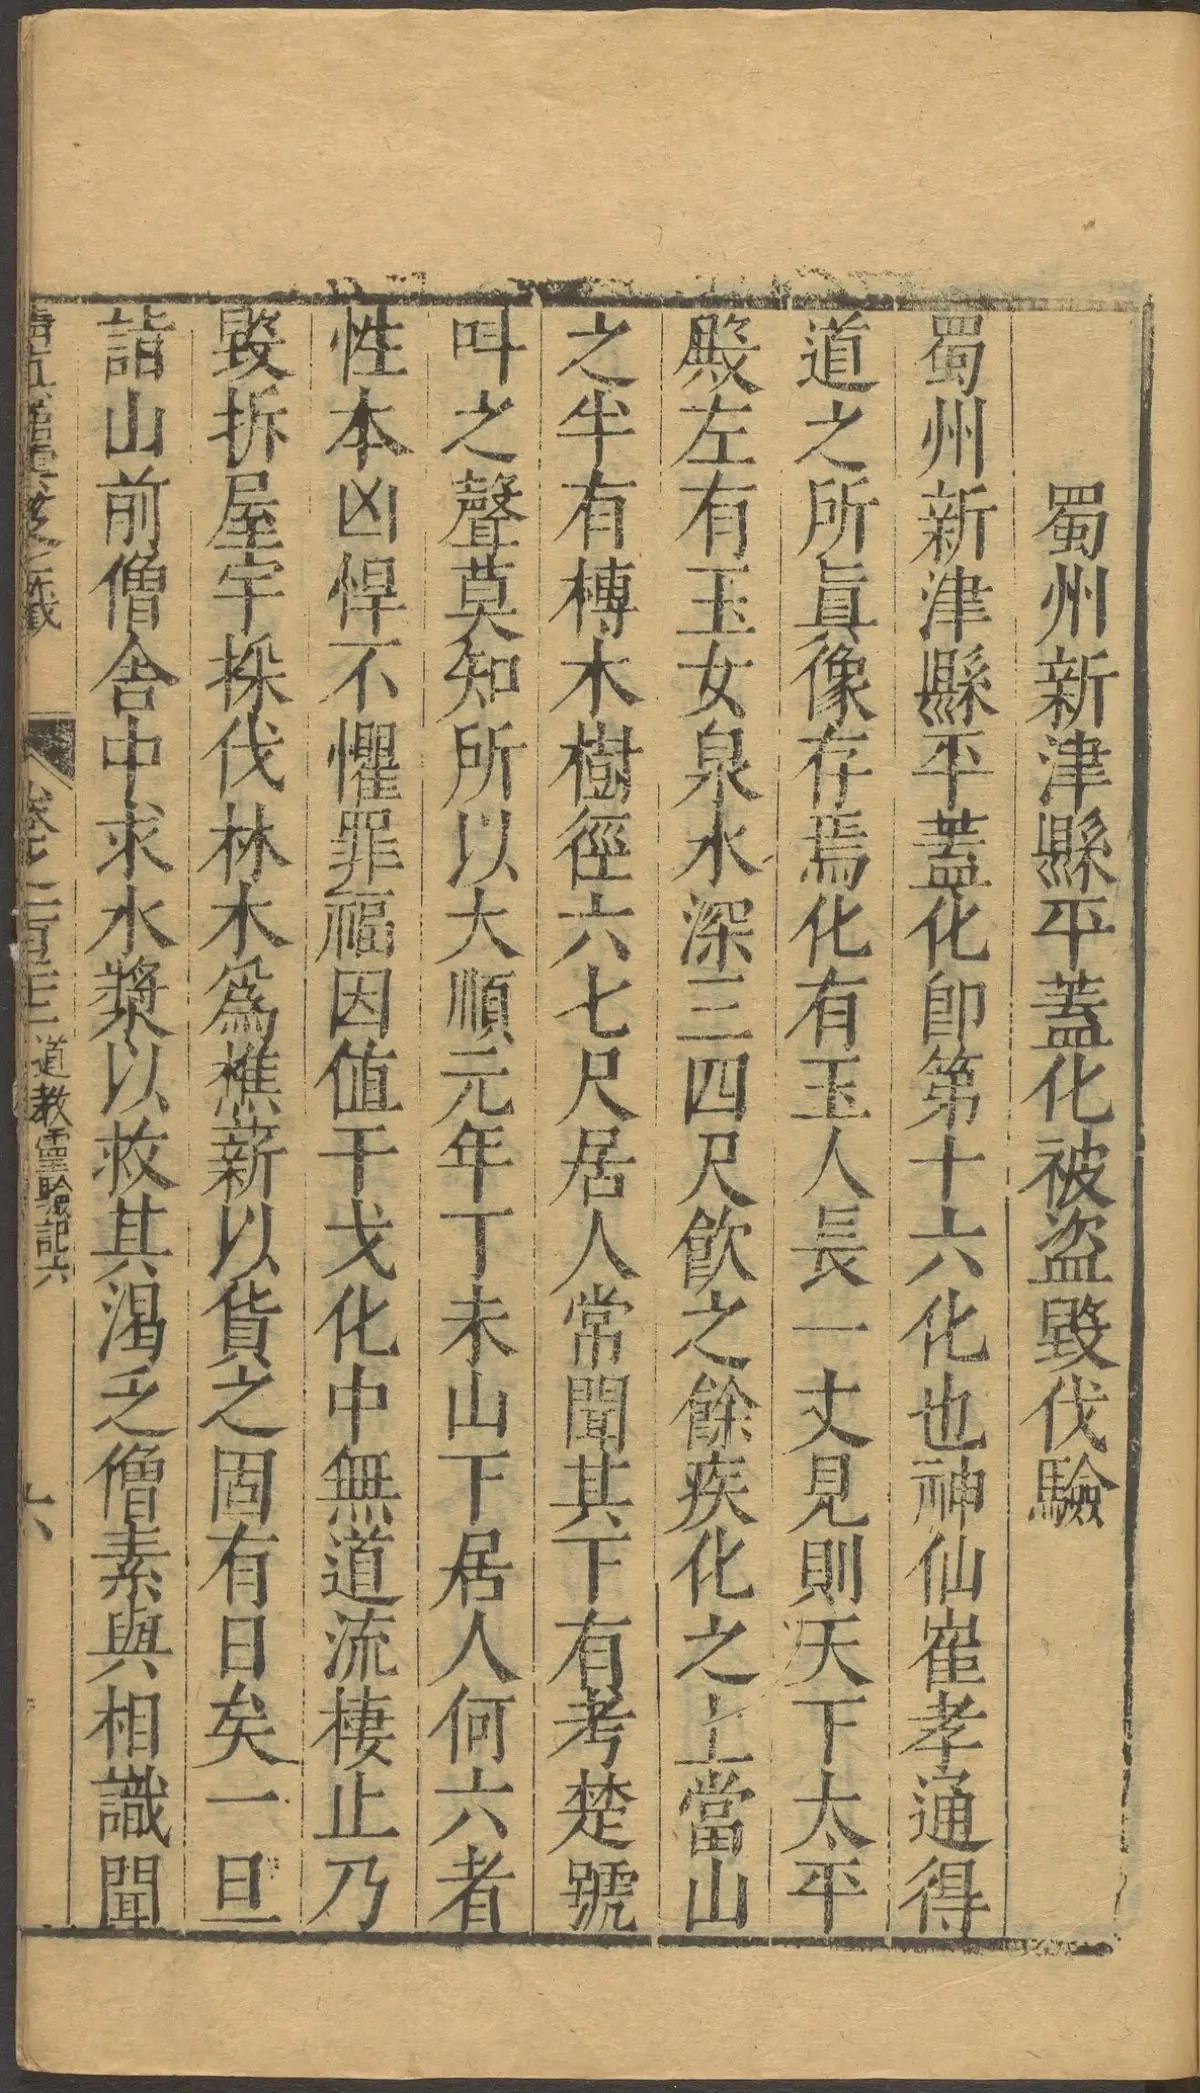 蜀州新津縣平蓋化被盜毀伐驗
蜀州新津縣平蓋化即第十六化也神仙崔孝通得
道之所眞像存焉化有玉人長一丈見則天下太平
殿左有玉女泉水深三四尺飲之餘疾化之上當山
之半有榑木樹徑六七尺居人常聞其下有考楚號
叫之聲莫知所以大順元年丁未山下居人何六者
性本凶悍不懼罪福因值干戈化中無道流棲止乃
毀拆屋宇採伐林木為樵薪以貨之固有日矣一旦
詣山前僧舍中求水漿以救其渴乏僧素與相識聞
道教靈驗記六
六